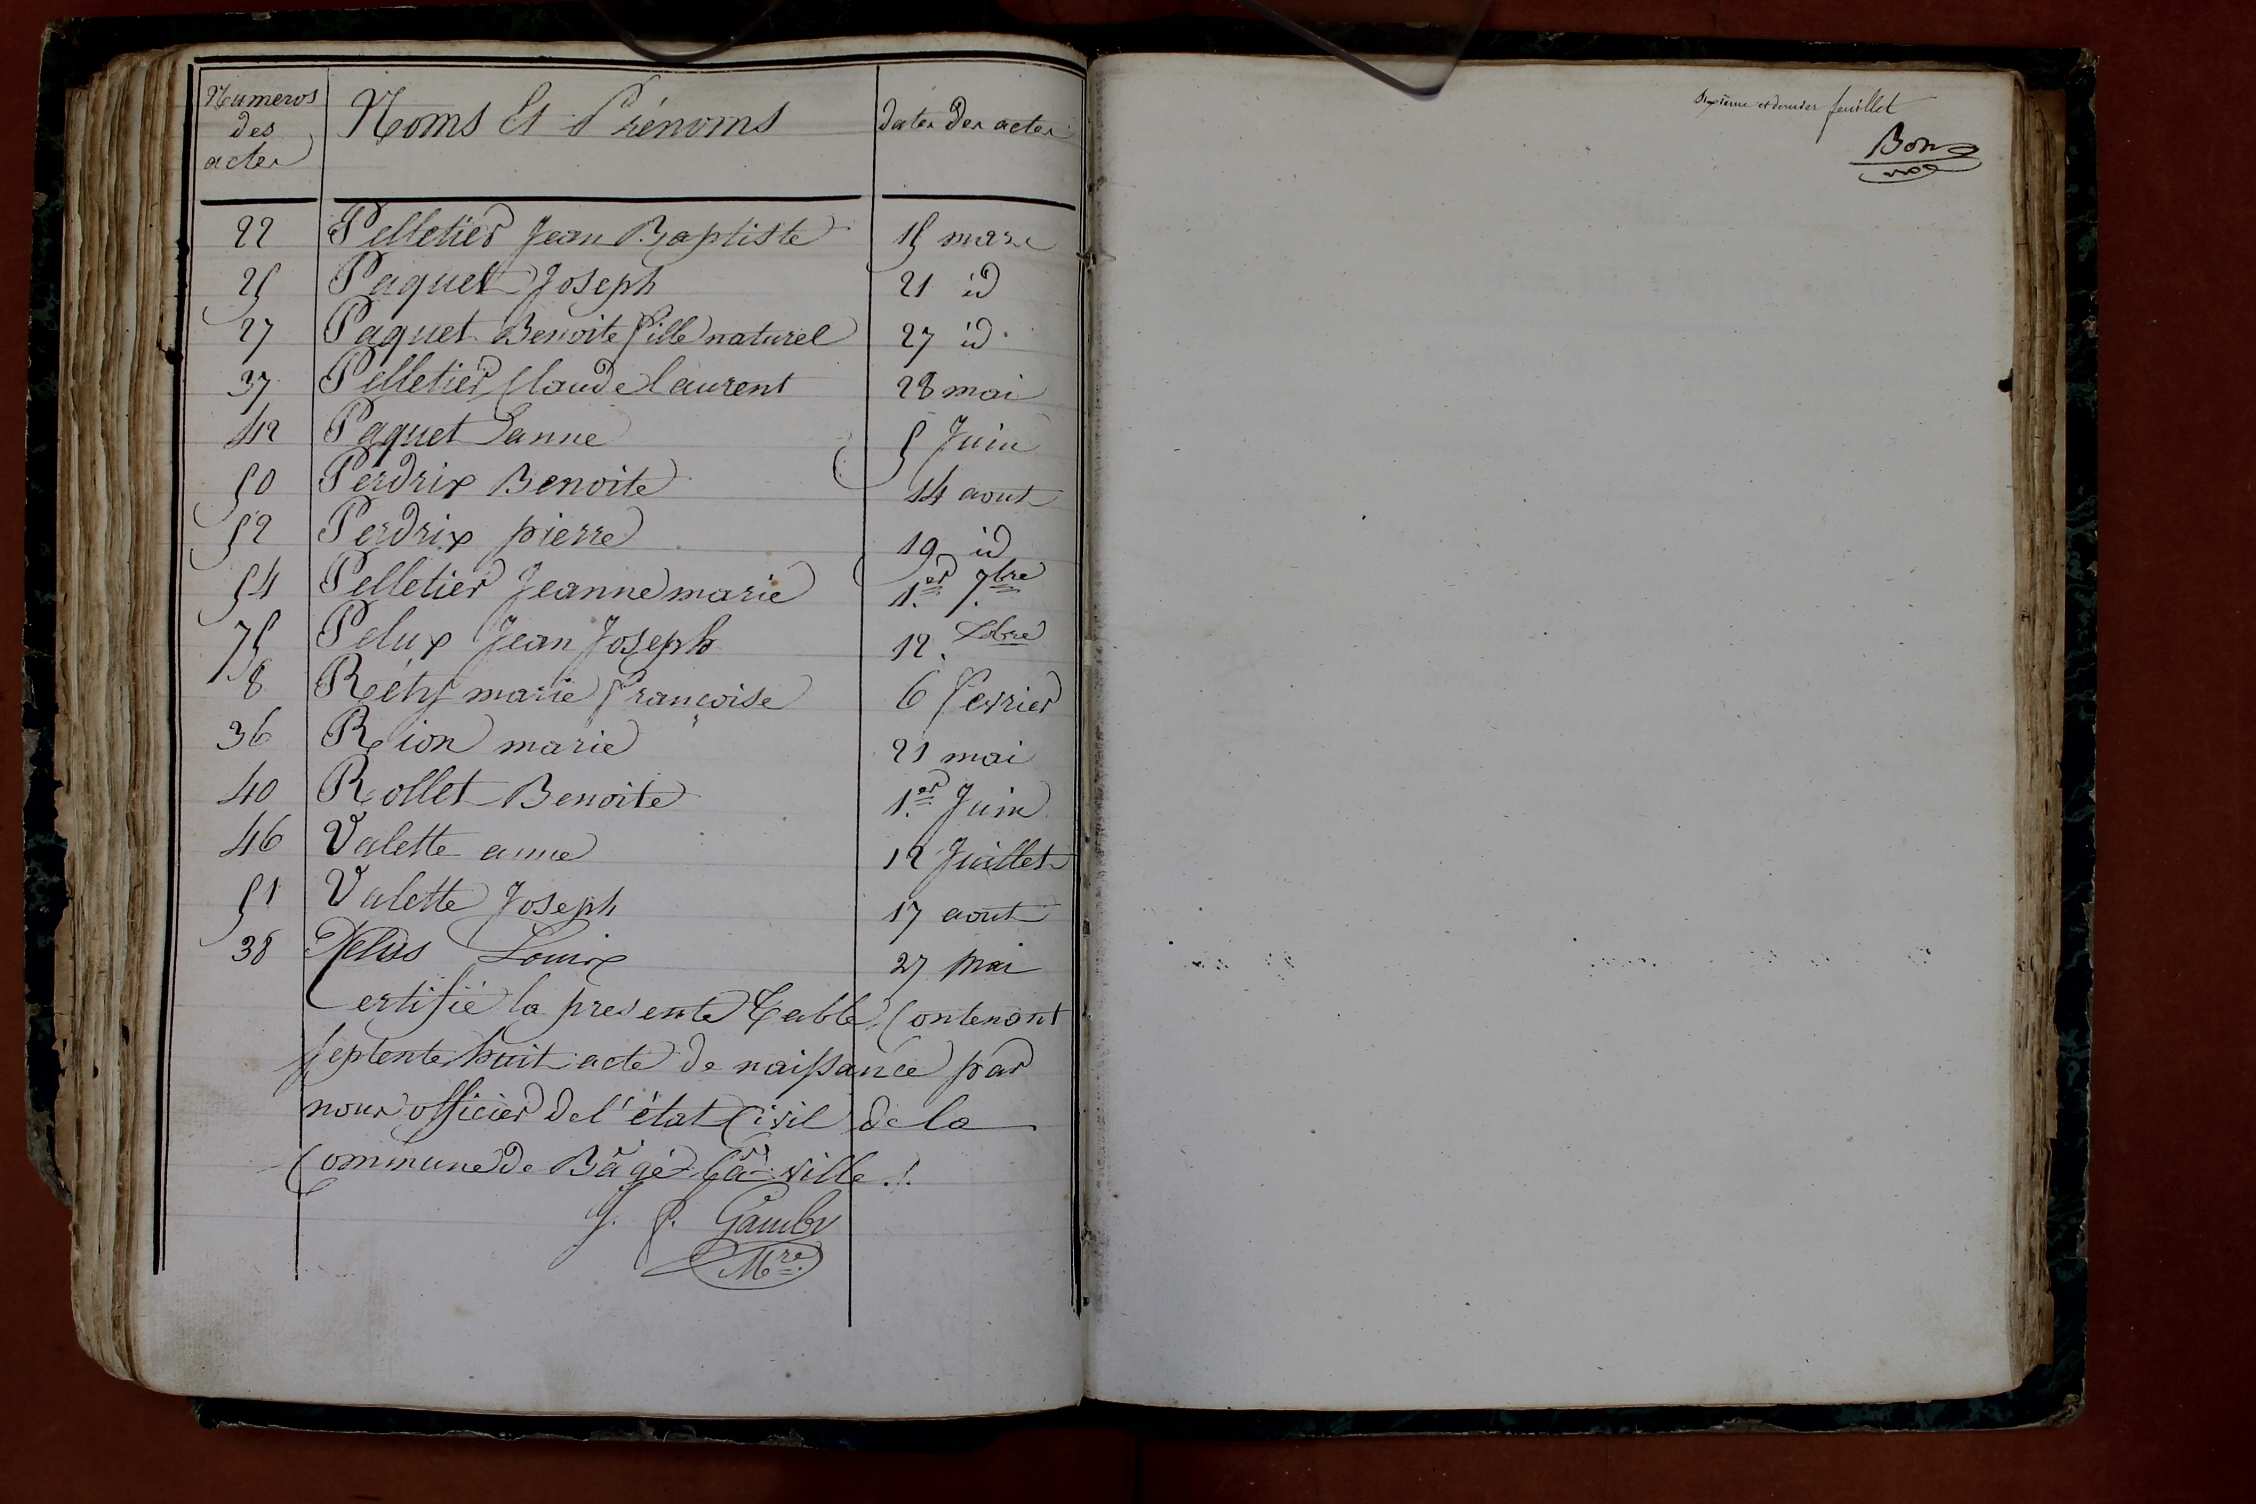 Numeros des actes Noms Et Prénoms dates des actes
22 Pelletier Jean Baptiste 15 mars
25 Paquet Joseph 21 id
27 Paquet Benoite fille naturel 27 id.
37 Pelletier Claude laurent 28 mai
42 Paquet Janne 5 Juin
50 Perdrix Benoite 14 aout
52 Perdrix pierre 19 id
54 Pelletier Jeanne marie 1.er 7.bre
75 Pelux Jean Joseph 12.
8 Réty marie françoise 6 fevrier
36 Rion marie 21 mai
40 Rollet Benoite 1.er Juin
46 Valette anne 12 Juillet
51 Valette Joseph 17 aout
38 Louis 27 mai
Certifié la presente Table Contenant
septente huit acte de naissance par
nous officier de l'état Civil de la
Commune de Bâgé la ville ./.
J. P. Gamby
M.re
sixième et dernier feuillet
Bon